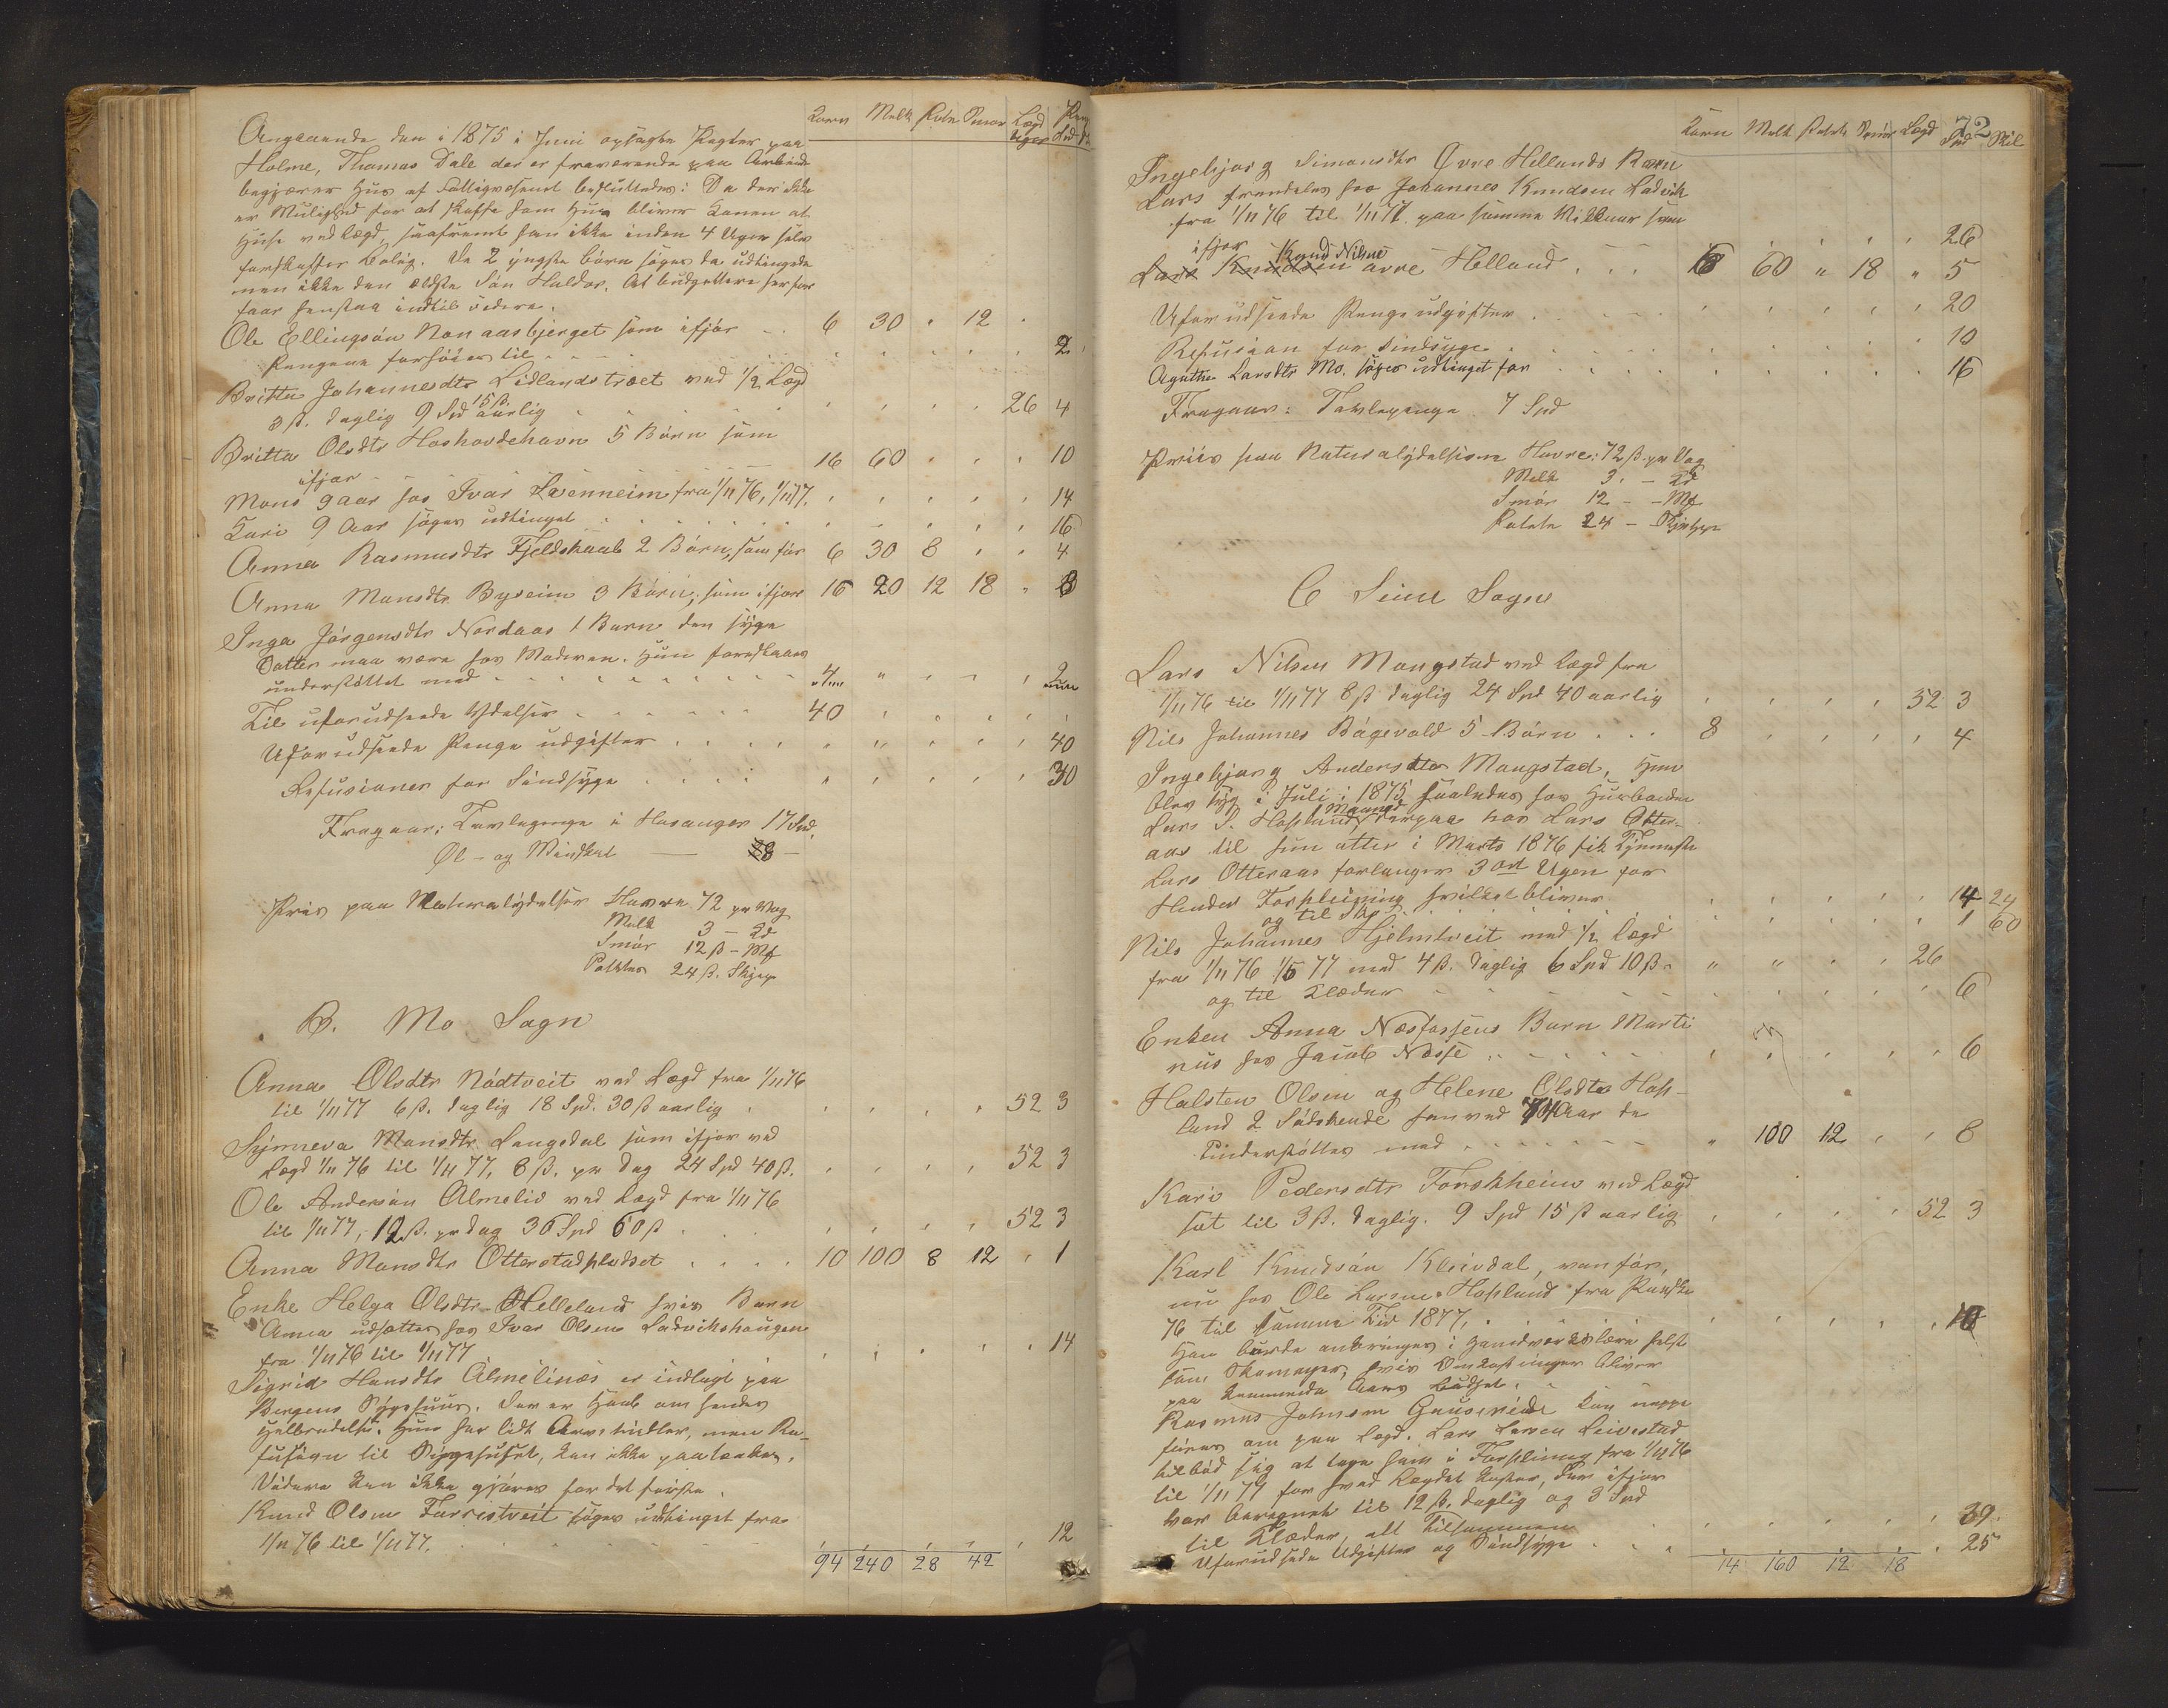 Korn Melk Potet Smør Lægd uger Peng Spd Sk
Angaaende den i 1875 i Juni opsagte Pagter paa
Holme, Thomas Dale der er fraværende paa Arbeide
begjærer Hus af Fattigvæsenet besluttedes: Da der ikke
er Mulighed for at skaffe ham Hus bliver Konen at
huse ved Lægd, saafremt han ikke inden 4 Uger selv
forskaffer Bolig. De 2 yngste Børn søges da udtingede
men ikke den ældste Søn Haldor. At budgettere herfor
faar henstaa indtil videre.
Ole Ellingsøn Nonaasbjerget som ifjor 6 30 " 12 "
Pengene forhøies til 2
Britta Johannesdtr Lidlandstræet ved 1/2 Lægd
3 ß. daglig 9 Spd 15 ß. aarlig 26 4
Britta Olsdtr Hoshovdehavn 5 Børn som
ifjor 16 60 10
Mons 9 aar hos Ivar Kvenneim fra 1/11 76, 1/11 77. 14
Kari 9 Aar søges udtinget 16
Anna Rasmusdtr Fjeldskaal 2 Børn, som før 6 30 8 4
Anna Monsdtr Byseim 3 Børn, som ifjor 16 20 12 18 " 8
Inga Jørgensdtr Nordaas 1 Barn den syge
Datter maa være hos Moderen. Hun foreslaaes
understøttet med 4 2
Til uforudseede Ydelser 40
Uforudseede Penge udgifter 40
Refusioner for Sindsyge 30
Fragaar: Tavlepenge i Hosanger 17 Spd.
Øl- og Vinskat 28
Pris paa Naturalydelser Havre 72 pr Vog
Melk 3 - Kd
Smør 12 ß - Mk
Poteter 24 ß. Skjep
B. Mo Sogn
Anna Olsdtr Nødtveit ved Lægd fra 1/11 76
til 1/11 77 6 ß. daglig 18 Spd. 30 ß aarlig 52 3
Synneva Monsdtr Langedal som ifjor ved
Lægd 1/11 76 til 1/11 77, 8 ß. pr Dag 24 Spd 40 ß. 52 3
Ole Andersøn Almelid ved Lægd fra 1/11 76
til 1/11 77, 12 ß. pr Dag 36 Spd 60 ß 52 3
Anna Monsdtr Otterstadpladset 10 100 8 12 " 1
Enke Helga Olsdtr Helleland hvis Barn
Anna udsættes hos Ivar Olsen Ladvikshaugen
fra 1/11 76 til 1/11 77 14
Sigrid Hansdtr Almelines er indlagt paa
Bergens Sygehuus. Der er Haab om hendes
Helbredelse. Hun har lidt Arvemidler, men Re-
fusion til Sygehuset, kan ikke paatænkes.
Videre kan ikke gjøres for det første.
Knud Olsen Farrestveit søges udtinget fra
1/11 76 til 1/11 77. 12
94 240 28 42
72
Korn Melk Potete Smør Lægd Spd Skil
Ingebjorg Simonsdtr Øvre Hellands Barn
Lars fremdeles hos Johannes Knudsen Ladvik
fra 1/11 76 til 1/11 77. paa samme Vilkaar som
ifjor 26
Knud Nilsen
Lars Knudsen øvre Helland 6 60 " 18 " 5
Uforudseede Penge udgifter 20
Refusion for Sindsyge 10
Agathe Larsdtr Mo, søges udtinget for 16
Fragaar: Tavlepenge 7 Spd
Priis paa Naturalydelserne Havre: 72 ß. pr Vog
Melk 3. - Kd
Smør 12 - - Mk
Potete 24 - Skjeppe
C Seim Sogn
Lars Nilsen Mongstad ved Lægd fra
1/11 76 til 1/11 77 8 ß daglig 24 Spd 40 aarlig 52 3
Nils Johannes Bøgevold 5 Børn 8 4
Ingebjorg Andersdtr Mongstad, Hun
blev syg i Juli i 1875 saaledes hos Husbonden
Lars S. Hopland 1 Maaned derpaa hos Lars Otter-
aas til hun atter i Marts 1876 fik Tjeneste
Lars Otteraas forlanger 3 Ort Ugen for
Hendes Forpleining hvilket bliver 14 24
og til Skp 1 60
Nils Johannes Hjelmtveit med 1/2 Lægd
fra 1/11 76 1/5 77 med 4 ß. daglig 6 Spd 10 ß 26
og til Klæder 6
Enken Anna Næsfossens Barn Marti
nus hos Jacob Næsse 6
Halsten Olsen og Helene Olsdtr Hop-
land 2 Sødskende henved 74 Aar de
Understøttes med " 100 12 8
Kari Pedersdtr Forskheim ved Lægd
sat til 3 ß. daglig. 9 Spd 15 ß aarlig 52 3
Karl Knudsøn Kleivdal, vanfør,
nu hos Ole Larsen Hopland fra Paaske
76 til samme Tid 1877, 10
Han burde anbringes i Haandværkslære helst
som Skomager, hvis Omkostninger bliver
paa kommende Aars Budget.
Rasmus Johnsen Gausereide kan neppe
føres om paa Lægd. Lars Larsen Leivestad
tilbød sig at tage ham i Forpleining fra 1/11 76
til 1/11 77 for hvad Lægdet koster, der ifjor
var beregnet til 12 ß. daglig og 3 Spd
til Klæder, alt tilsammen 39.
Uforudseede Udgifter og Sindsyge 25
14 160 12 18